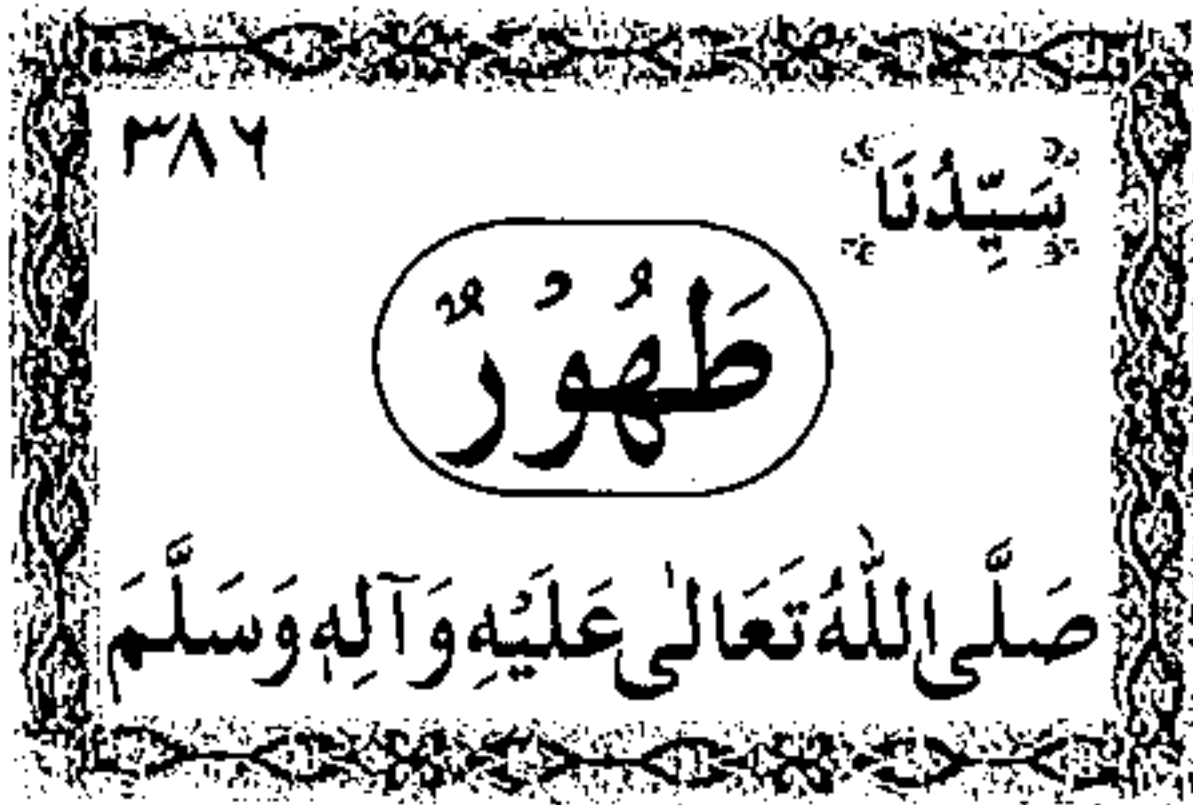 سَيِّدُنَا ٣٨٦
طَهُوْرٌ
صَلَّى اللّٰهُ تَعَالٰى عَلَيْهِ وَآلِهٖ وَسَلَّمَ